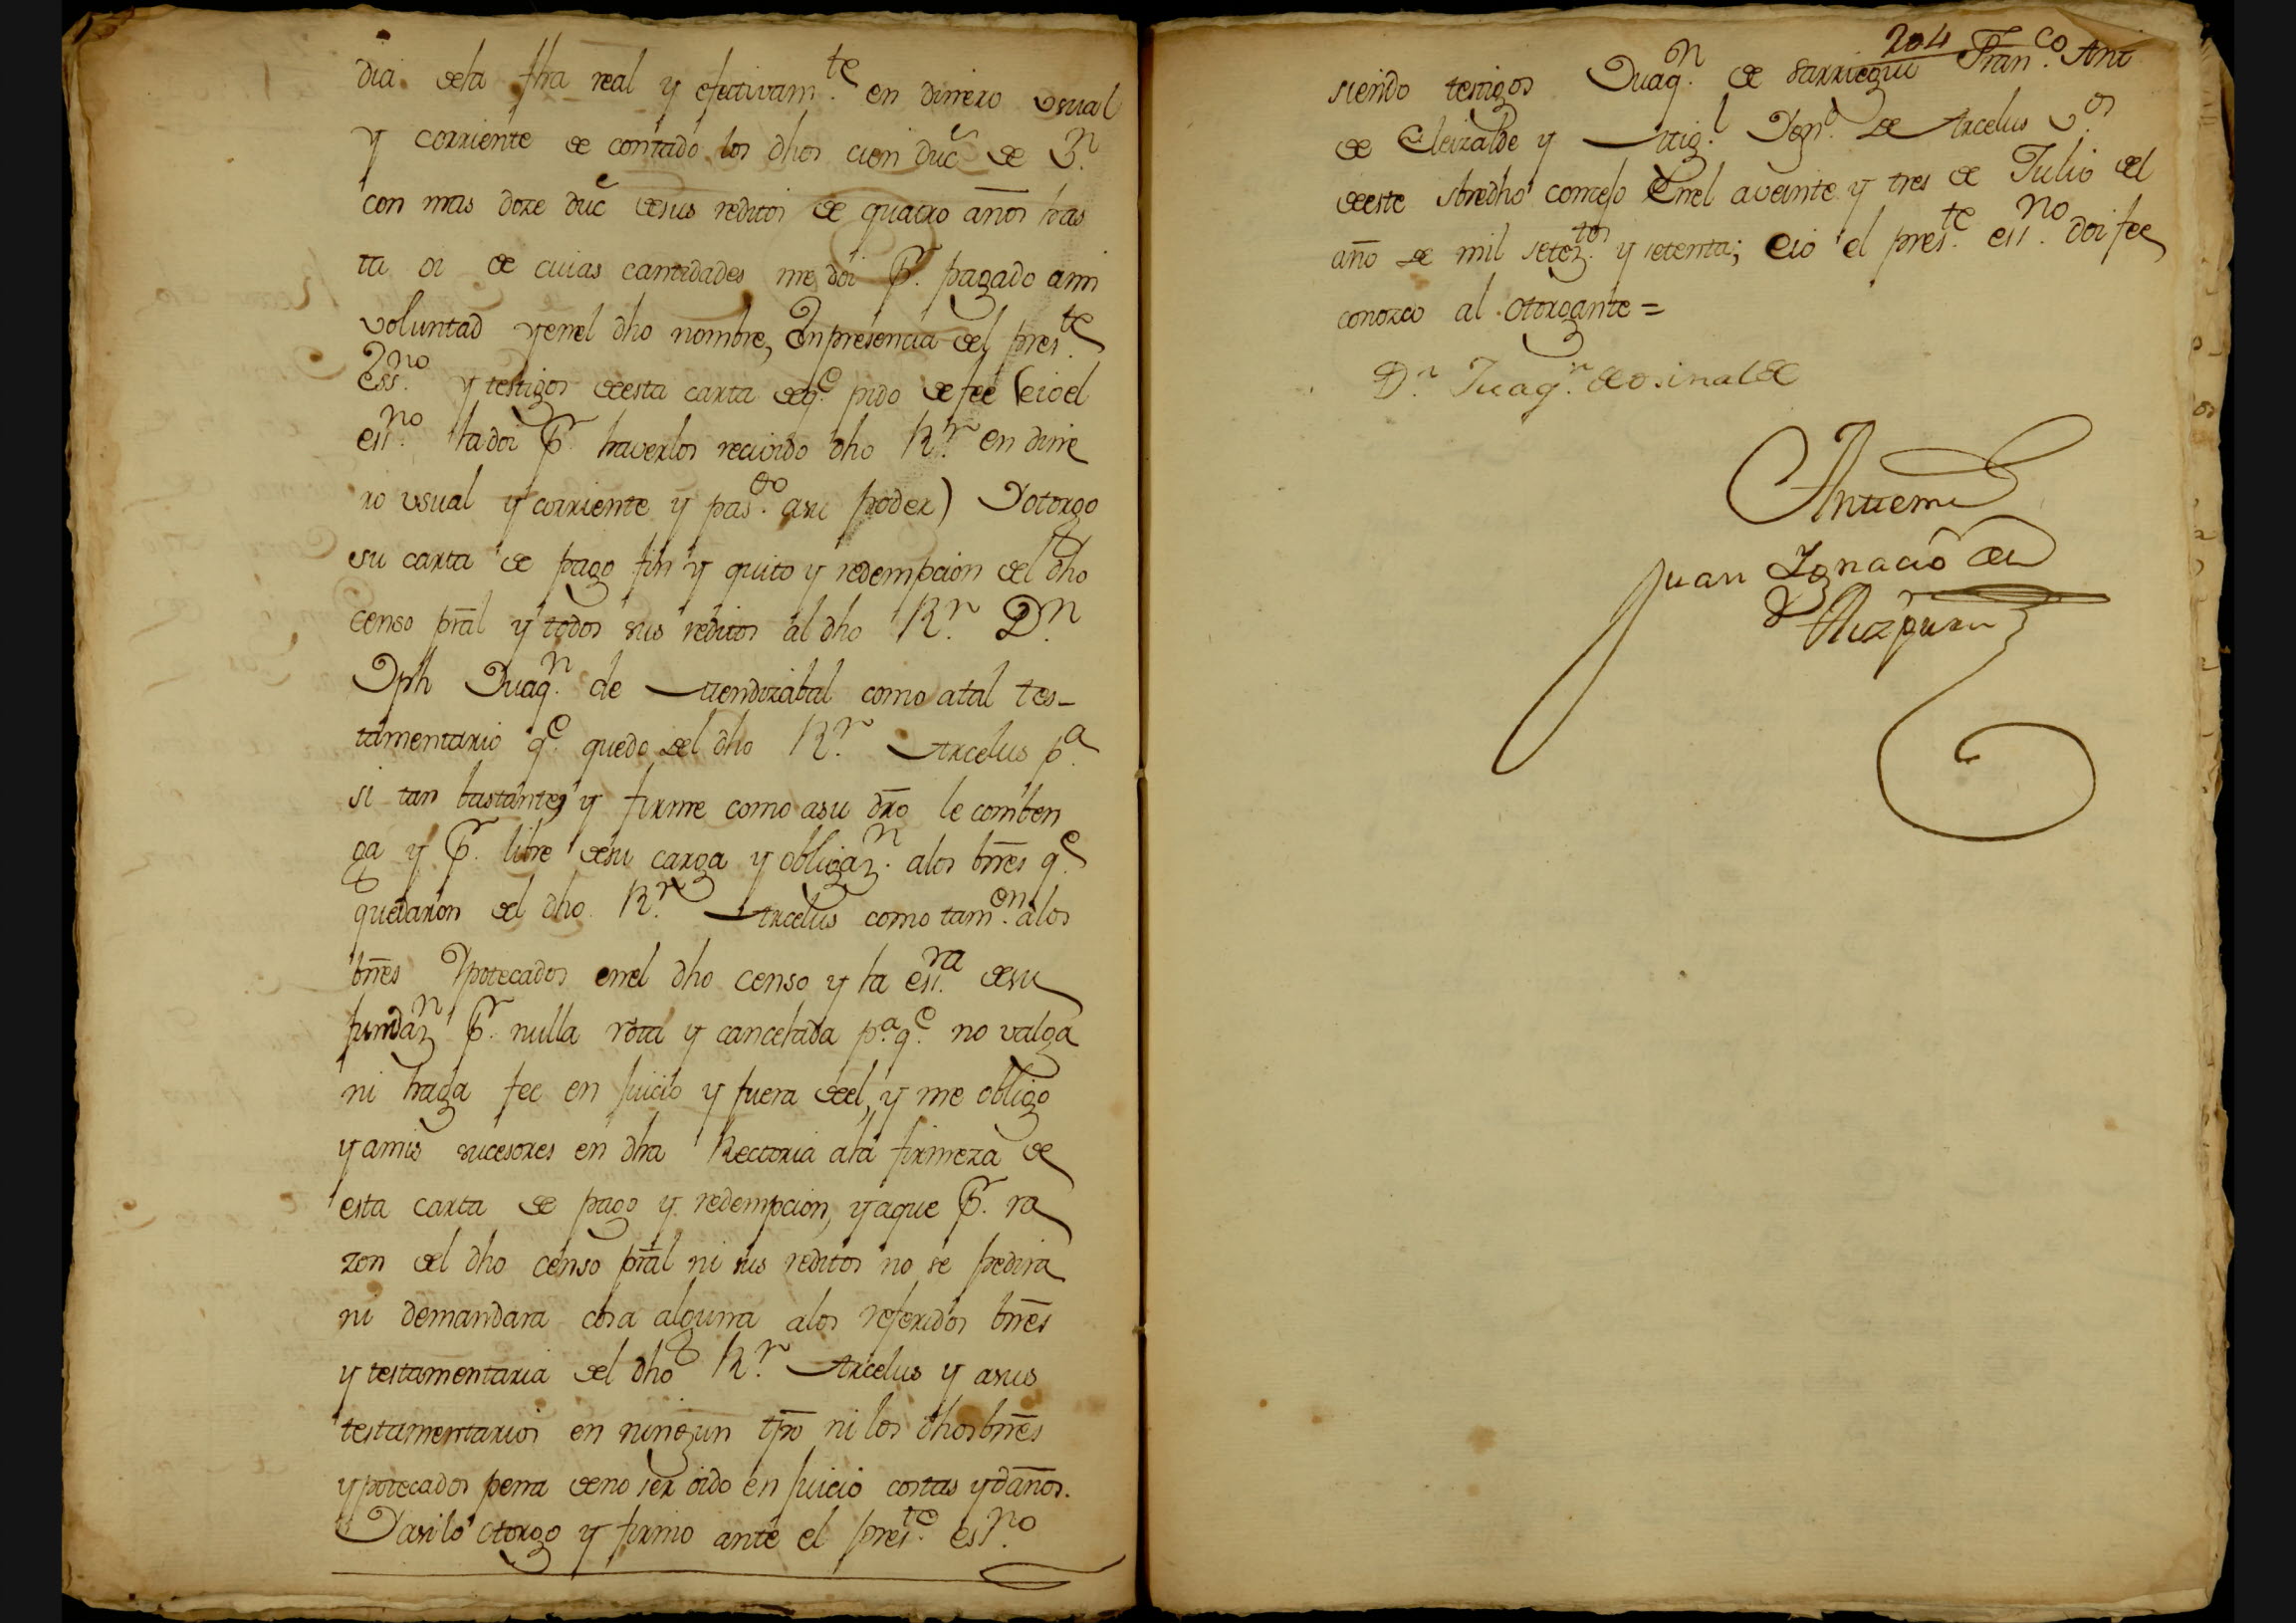 dia dela fha real y efectivam.te en dinero usual
y corriente de contado los dhos cien duc.s de V.n
con mas doze duc.s desus reditos de quatro años has
ta oi de cuias cantidades me doi p.r pagado ami
voluntad yenel dho nombre, Enpresencia del pres.te
ess.no y testigos deesta carta deq.e pido de fee (eioel
ess.no la doi p.r haverlos recivido dho R.r en dine
ro usual y corriente y pas.do asu poder) Yotorgo
su carta de pago fin y quito y redempcion del dho
censo pral y todos sus reditos al dho R.r D.n
Jph Juaq.n de Mendizabal como atal tes-
tamentario q.e quedo del dho R.r Arcelus p.a
si tan bastante y firme como asu dro le comben
ga y p.r libre desu carga y obligaz.n alos bnes q.e
quedaron del dho R.r Arcelus como tam.en alos
bnes Ypotecados enel dho censo y la ess.ra desu
fundaz.n p.r nulla rota y cancelada p.a q.e no valga
ni haga fee en juicio y fuera deel, y me obligo
yamis sucesores en dha Rectoria ala firmeza de
esta carta de pago y redempcion, yaque p.r ra
zon del dho censo pral ni sus reditos no se pedira
ni demandara cosa alguna alos referidos bnes
y testamentaria del dho R.r Arcelus y asus
testamentarios en ningun tpo ni los dhos bnes
ypotecados pena deno ser oido en juicio costas ydaños.
Yasilo otorgo y firmo ante el pres.te ess.no
204
siendo testigos Juaq.n de Sarriegui Fran.co Ant
de Eleizalde y Mig.l Ygn.o de Arcelus v.os
deeste sbredho concejo Enel aveinte y tres de Julio del
año de mil setez.tos y setenta; eio el pres.te ess.no doi fee
conozco al otorgante =
D.n Juaq.n deosinalde
Antemi
Juan Ignacio de
Aizpuru